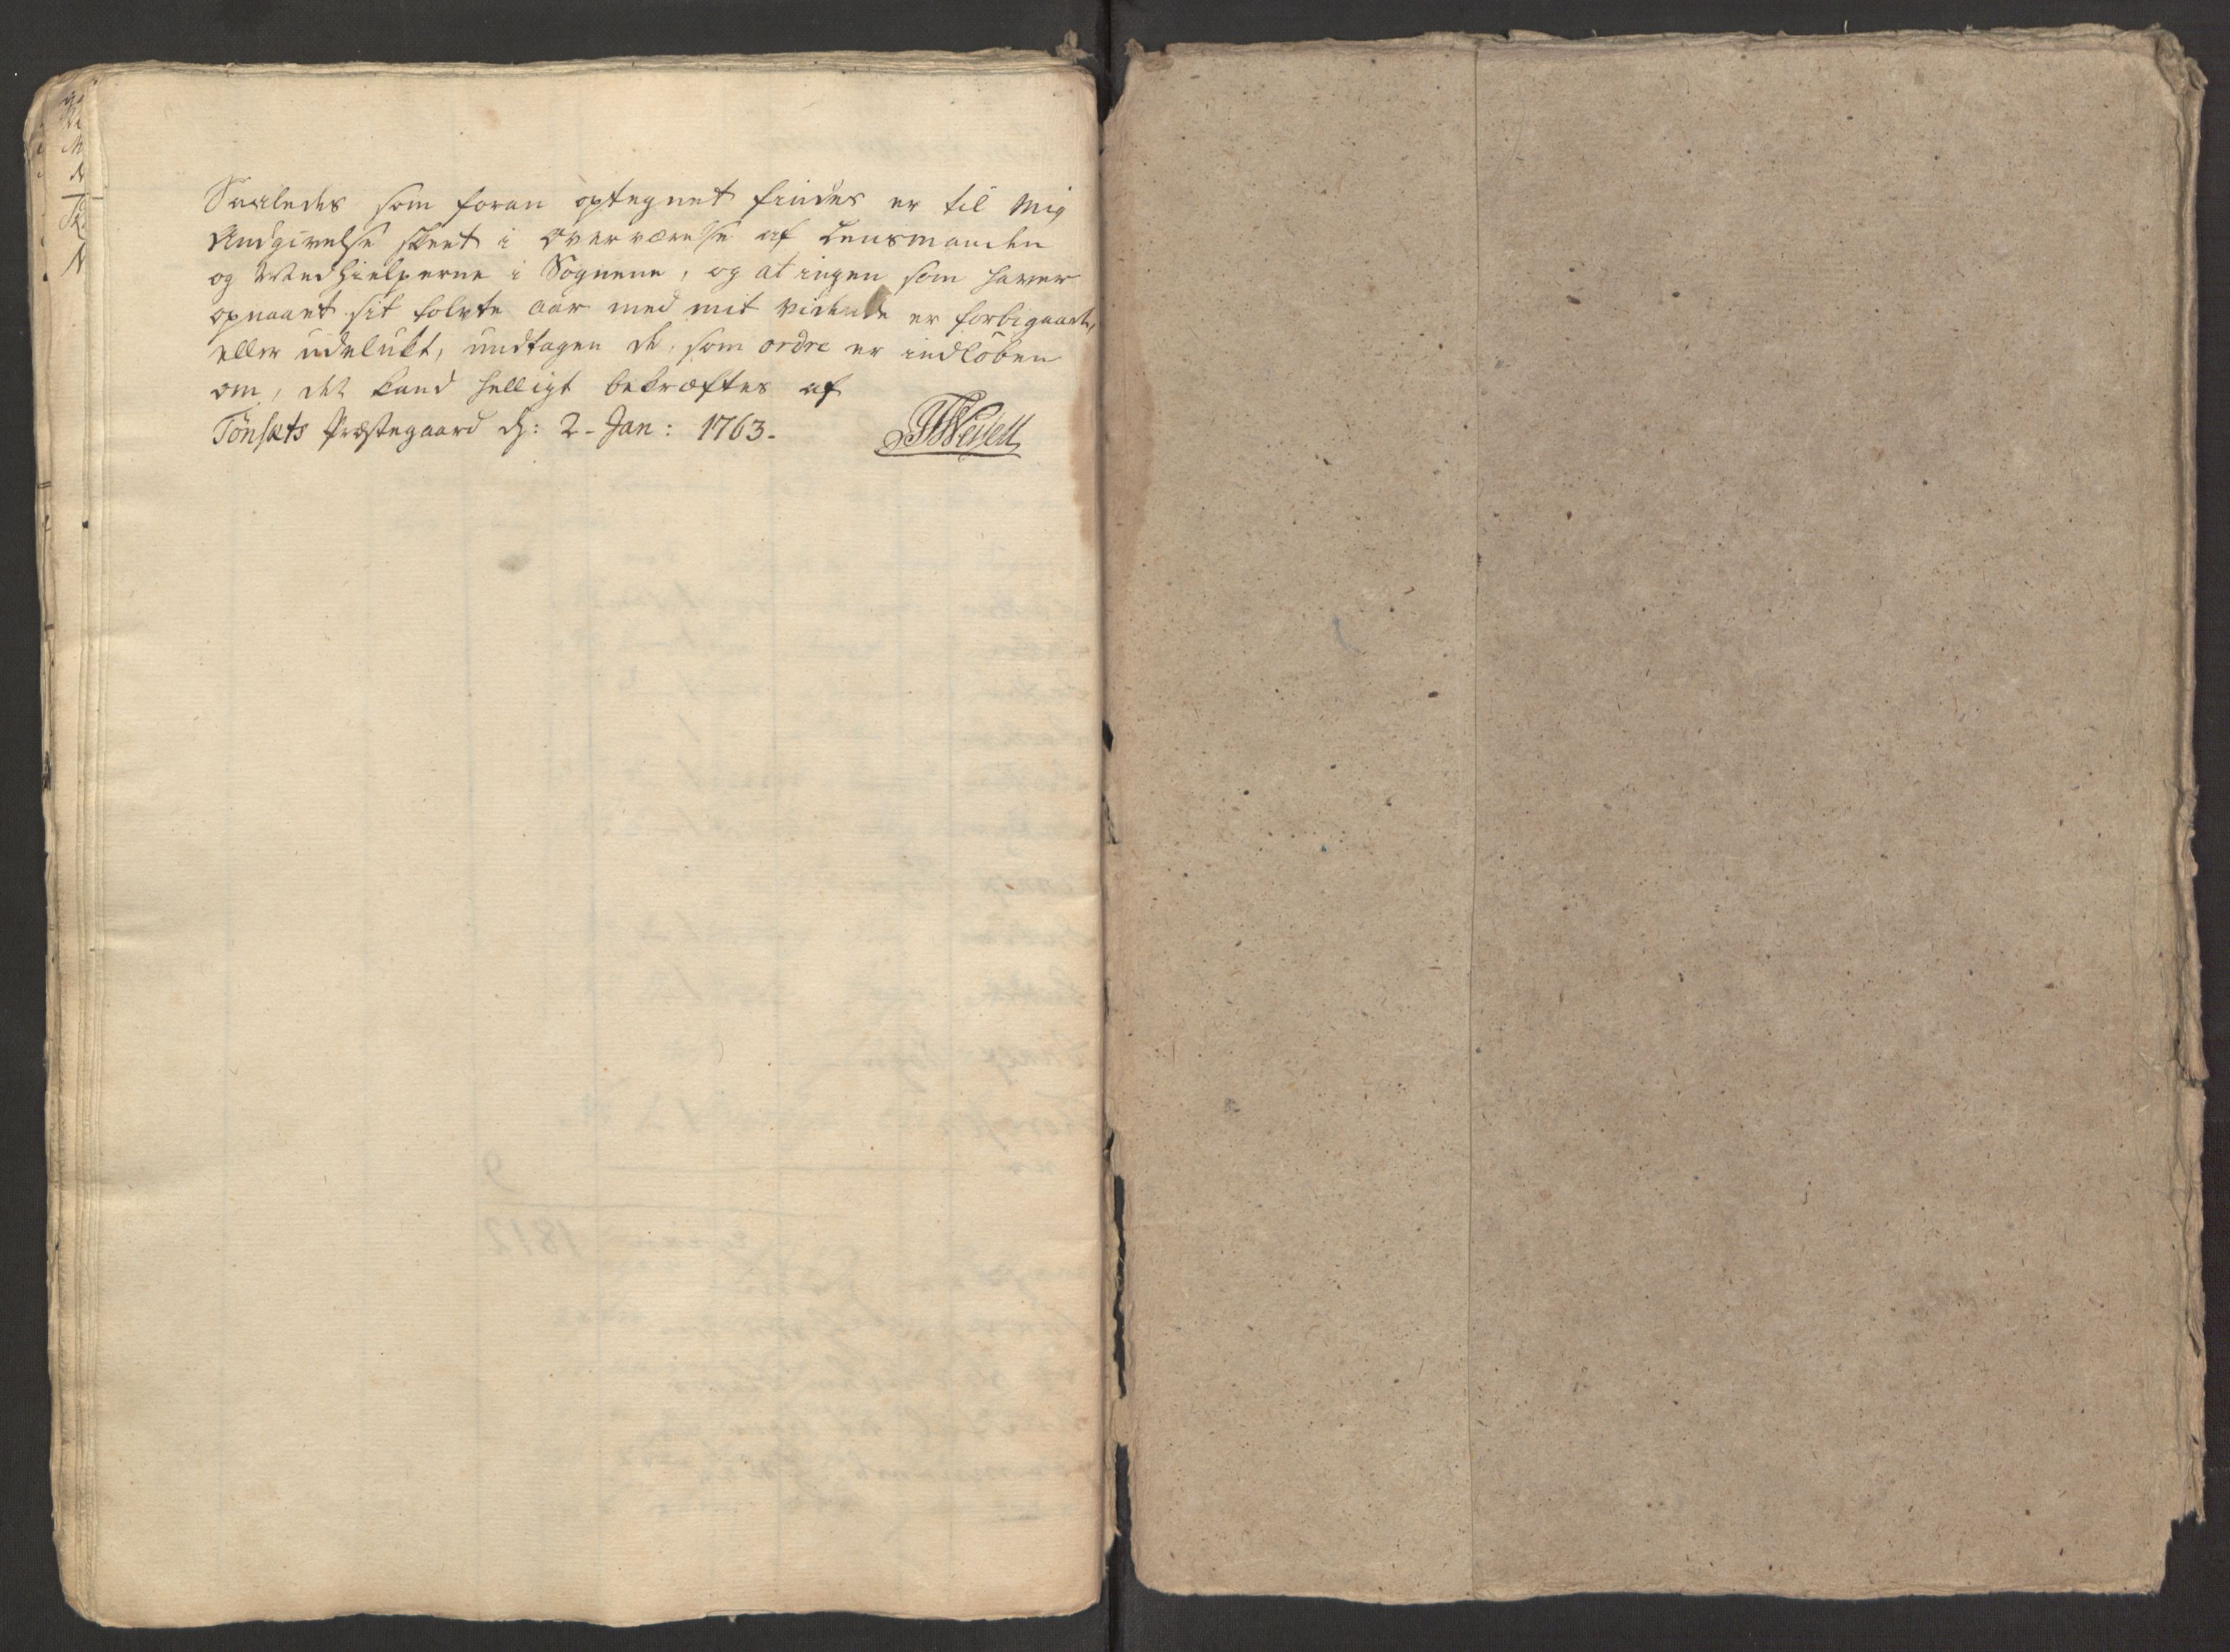 Saaledes som foran optegnet findes er til Mig
Andgivelse skeet i Overværelse af Lensmanden
og Medhielperne i Sognene, og at ingen som haver
opnaaet sit tolvte aar med mit vidende er forbigaaet,
eller udelukt, undtagen de, som ordre er indløben
om, det kand helligt bekræftes af
Tønsets Præstegaard d: 2- Jan: 1763.